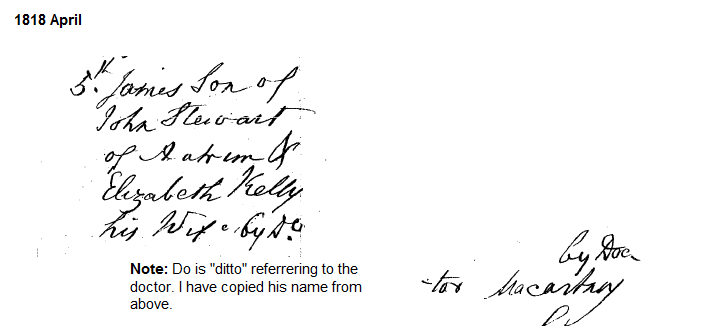 1818 April
5th. James Son of
John Stewart
of Antrim &
Elizabeth Kelly
his Wife by Do.
Note: Do is "ditto" referrering to the
doctor. I have copied his name from
above.
by Doc
-tor Macartney